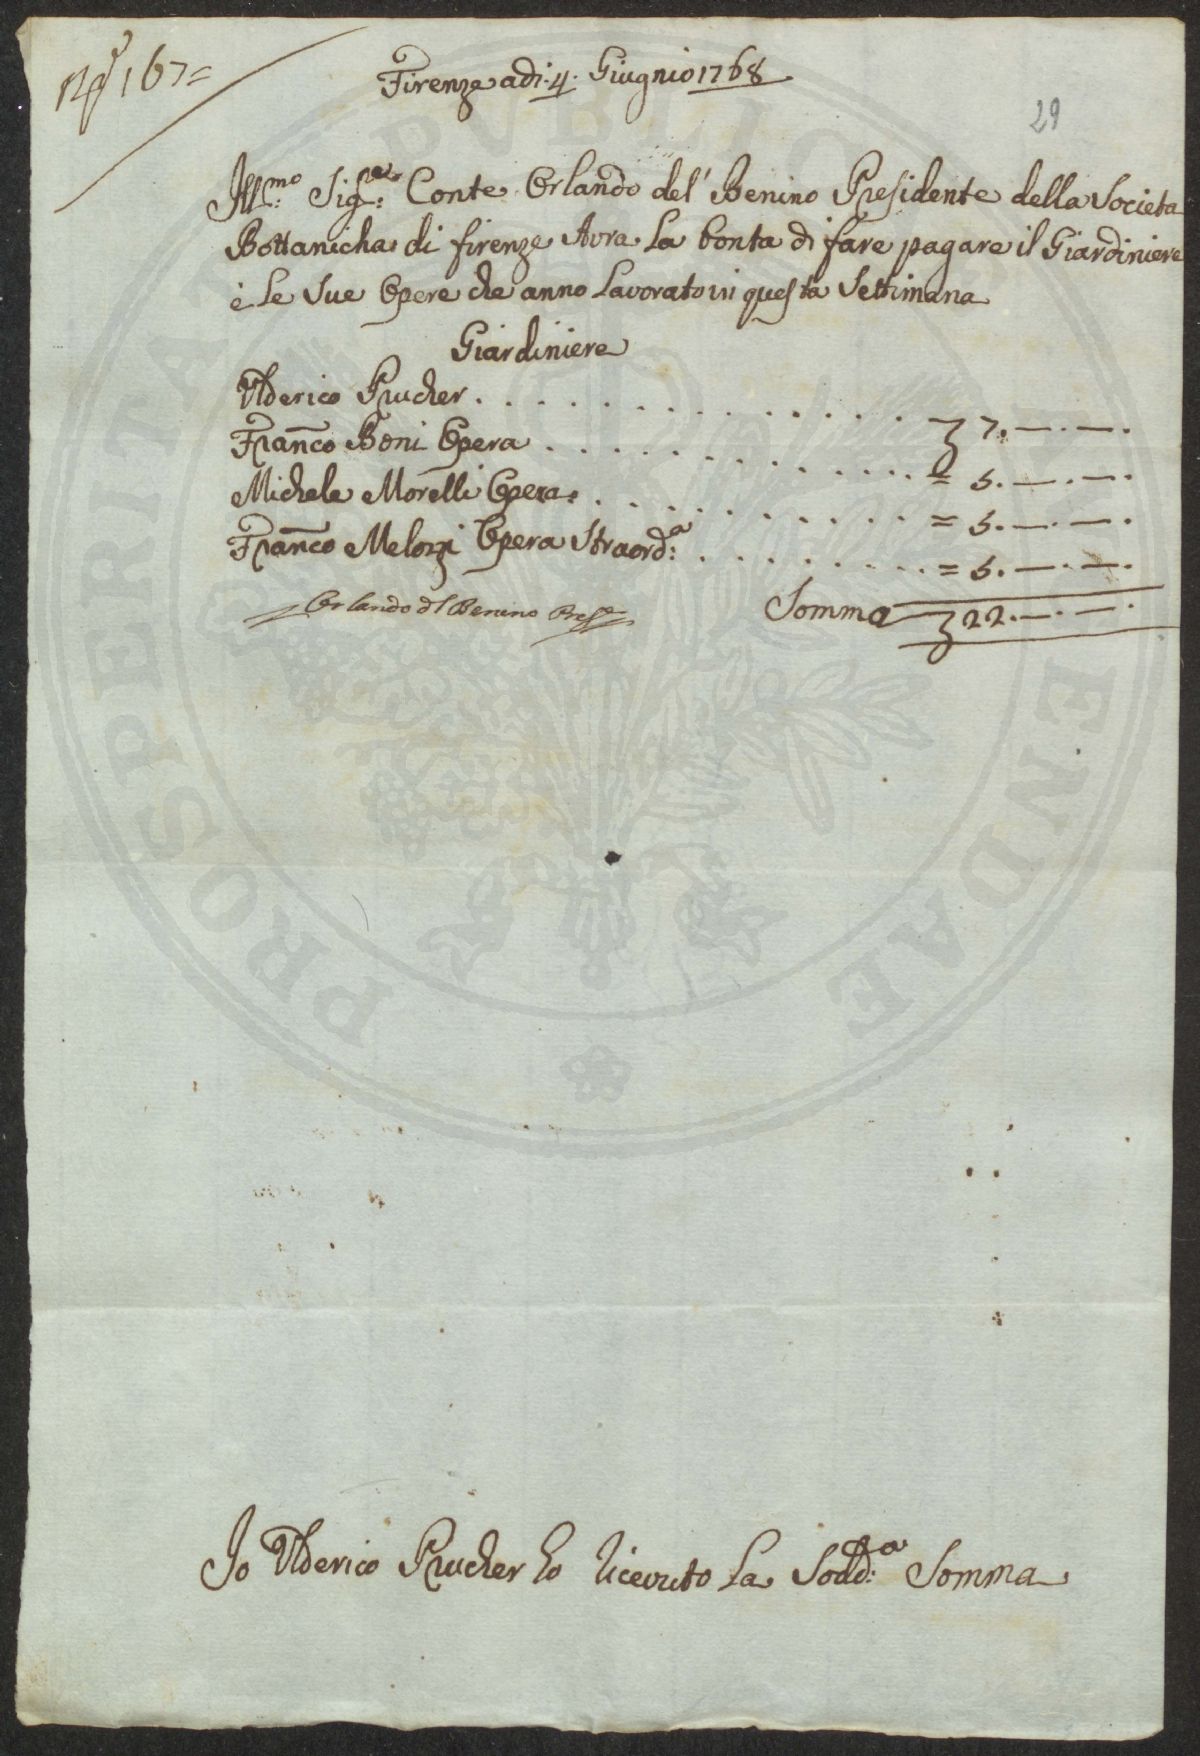 N.º 167=
Firenze adi: 4: Giugnio 1768
29
Ill:mo Sig:re Conte Orlando del' Benino Presidente della Societa
Bottanicha di firenze Avra La bonta di fare pagare il Giardiniere
è Le Sue Opere che anno Lavorato in questa Settimana
Giardiniere
Ulderico Prucher . . . . . . . . . . . . . . . 7. — . — .
Franco Boni Opera . . . . . . . . . . . . = 5. — . — .
Michele Morelli Opera . . . . . . . . . . . = 5. — . — .
Franco Melozzi Opera Straord:a . . . . . . . . = 5. — . — .
Orlando del Benino Preste
Somma 22. — . — .
Io Ulderico Prucher ho Ricevuto La Sodd:a Somma
PROSPERITATI PVBLICAE AVGENDAE